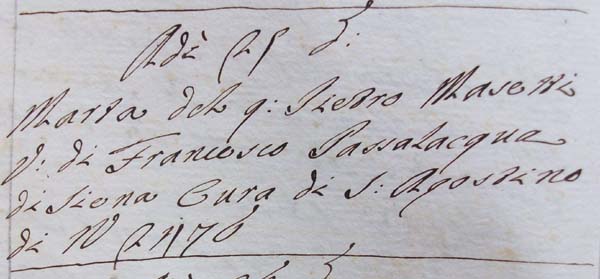 Adì 25 d:
Marta del q: Pietro Masetti
V: di Francesco Passalacqua
di Siena Cura di S: Agostino
di N